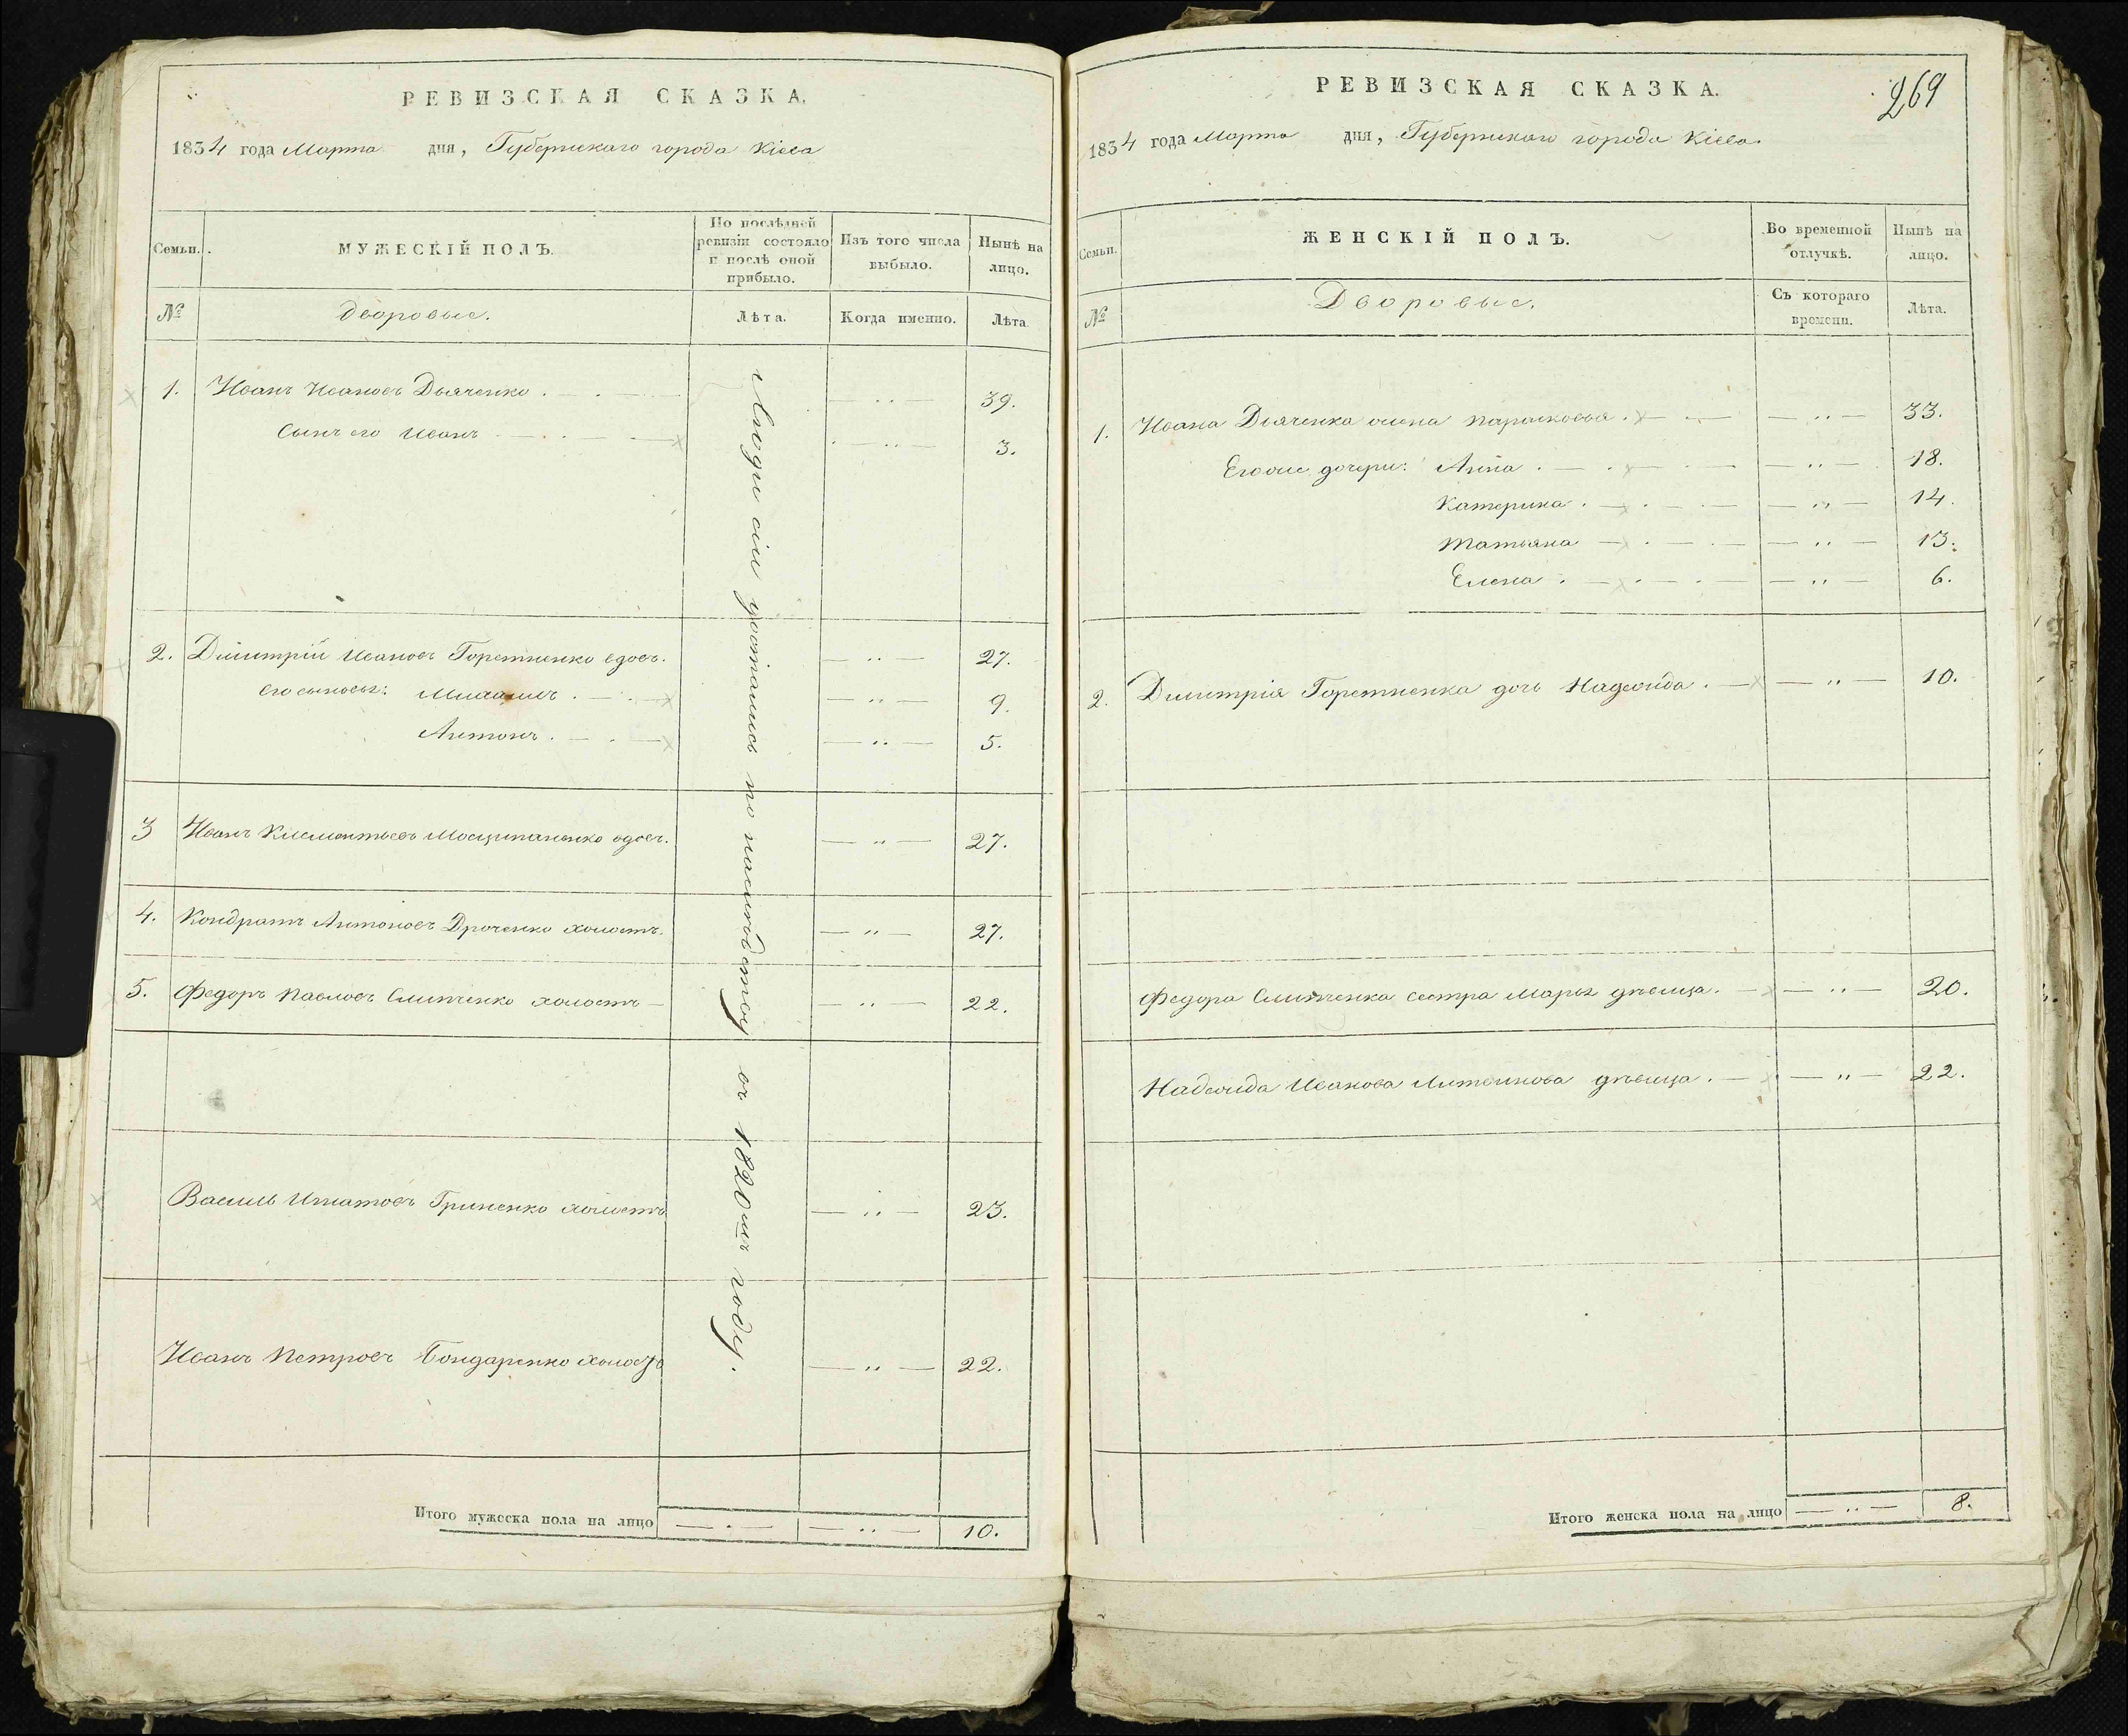 РЕВИЗСКАЯ СКАЗКА.
1834 года Марта дня, Губернскаго города Кіева
Семьи.
МУЖЕСКІЙ ПОЛЪ.
По послѣдней ревизіи состояло и послѣ оной прибыло.
Изъ того числа выбыло.
Нынѣ на лицо.
№
Дворовые.
Лѣта.
Когда именно.
Лѣта.
1. Иванъ Ивановъ Дьяченко . — . — — .. — 39.
Сынъ его Иванъ — . — . — — .. — 3.
2. Димитрій Ивановъ Горетненко вдовъ. — .. — 27.
Его сыновья: Михаилъ . — . — — .. — 9.
Антонъ . — . — — .. — 5.
3 Иванъ Климентьевъ вдовъ. — .. — 27.
4. Кондратъ Антоновъ Дроченко холостъ. — .. — 27.
5. Федоръ Павловъ Слипченко холостъ — — .. — 22.
Василь Игнатовъ Гриненко холостъ — .. — 23.
Иванъ Петровъ Бондаренко холостъ — .. — 22.
Люди сіи достались по наслѣдству въ 1820мъ году.
Итого мужеска пола на лицо — . — — .. — 10.
РЕВИЗСКАЯ СКАЗКА.
269
1834 года Марта дня, Губернскаго города Кіева.
Семьи.
ЖЕНСКІЙ ПОЛЪ.
Во временной отлучкѣ.
Нынѣ на лицо.
№
Дворовые.
Съ котораго времени.
Лѣта.
1. Ивана Дьяченка жена Парасковья . — — — .. — 33.
Егоже дочери: Анна . — . — . — .. — 18.
Катерина . — . — . — — .. — 14.
Татьяна — . — . — — .. — 13.
Елена . — . — . — — .. — 6.
2. Димитрія Горетненка дочь Надежда . — — .. — 10.
Федора Слипченка сестра Марья дѣвица . — — .. — 20.
Надежда Иванова Литвинова дѣвица . — — .. — 22.
Итого женска пола на лицо — .. — 8.